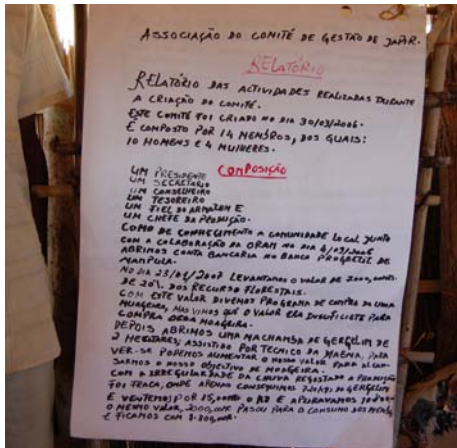 ASSOCIAÇÃO DO COMITÉ DE GESTÃO DE JAPIR.
RELATÓRIO
RELATÓRIO DAS ACTIVIDADES REALIZADAS DURANTE
A CRIAÇÃO DO COMITÉ.
ESTE COMITÉ FOI CRIADO NO DIA 30/03/2006.
É COMPOSTO POR 14 MEMBROS, DOS QUAIS:
10 HOMENS E 4 MULHERES.
COMPOSIÇÃO
UM PRESIDENTE
UM SECRETARIO
UM CONSELHEIRO
UM TESOREIRO
UM FIEL DO ARMAZEM E
UM CHEFE DA PRODUÇÃO.
COMO DE CONHECIMENTO A COMUNIDADE LOCAL JUNTO
COM A COLABORAÇÃO DA ORAM NO DIA 4/03/2006
ABRIMOS CONTA BANCARIA NO BANCO
NAMPULA.
NO DIA 23/01/2007 LEVANTAMOS O VALOR DE
DE 20% DOS RECURSO FLORESTAIS.
COM ESTE VALOR PROGRAMA DE COMPRA DE UMA
MOAGEIRA, MAS VIMOS QUE O VALOR ERA INSUFICIETE PARA
COMPRA DESSA MOAGEIRA.
DEPOIS ABRIMOS UMA MACHAMBA DE GERGELIM DE
2 HECTARES, ASSISTIDO POR TECNICO DA PARA
VER-SE PODEMOS AUMENTAR O NOSSO VALOR PARA ALCAN-
SARMOS O NOSSO OBJECTIVO DE MOAGEIRA.
COM A IRREGULARIDADE DA CHUVA REGISTADA A PRODUÇÃO
FOI FRACA, ONDE APENAS CONSEGUIMOS DE GERGELIM
E VENDEMOS POR 15,00MT O KG E APURAVAMOS
O MESMO VALOR, 2000,00MT PASOU PARA O CONSUMO DOS
E FICAMOS COM